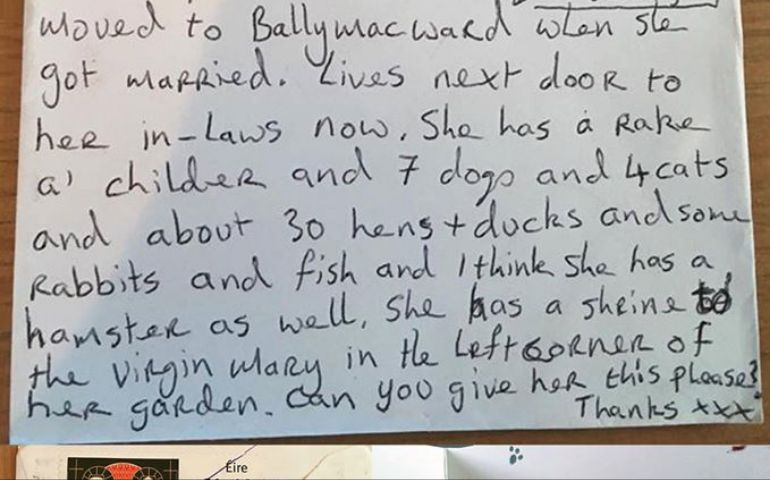 moved to Ballymacward when she
got married. Lives next door to
her in-laws now. She has a rake
a' childer and 7 dogs and 4 cats
and about 30 hens + ducks and some
Rabbits and fish and I think she has a
hamster as well. She has a shrine to
the Virgin Mary in the left corner of
her garden. Can you give her this please?
Thanks xxx
Éire